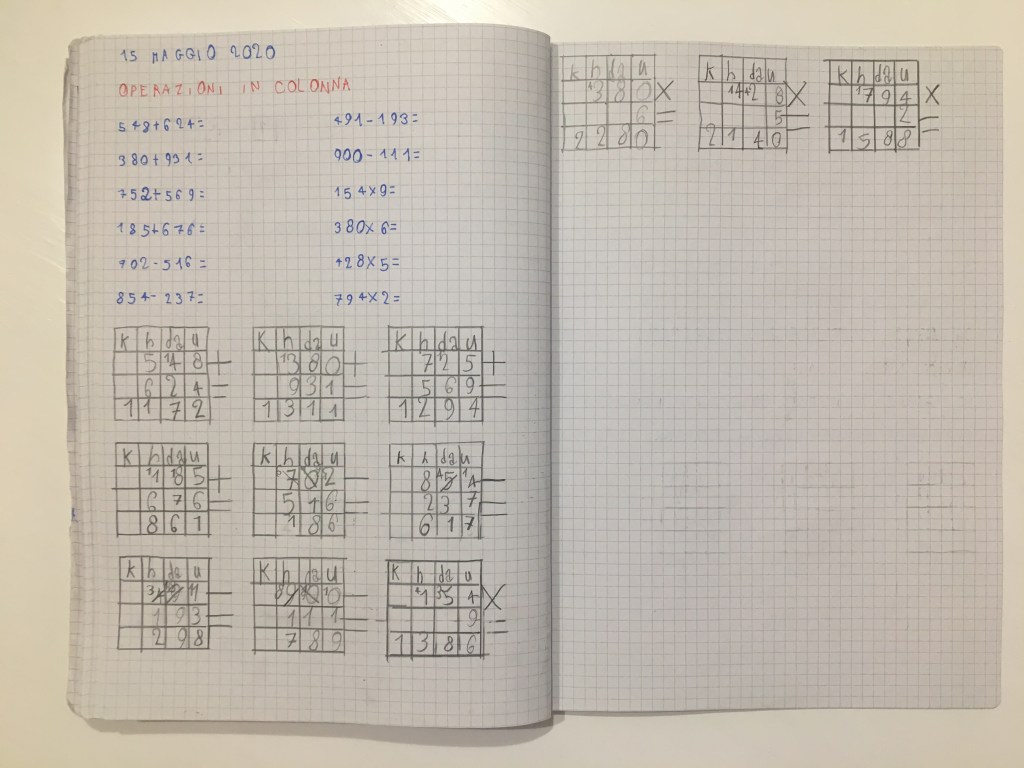 15 MAGGIO 2020
OPERAZIONI IN COLONNA
548+624= 491-193=
380+931= 900-111=
752+569= 154x9=
185+676= 380x6=
702-516= 428x5=
854-237= 794x2=
K h da u K h da u K h da u
5 14 8 + 13 8 0 + 7 12 5 +
6 2 4 = 9 3 1 = 5 6 9 =
1 1 7 2 1 3 1 1 1 2 9 4
K h da u K h da u K h da u
1 8 5 + 7 0 2 - 8 5 4 -
6 7 6 = 5 1 6 = 2 3 7 =
8 6 1 1 8 6 6 1 7
K h da u K h da u K h da u
4 9 1 - 9 0 0 - 1 5 4 X
1 9 3 = 1 1 1 = 9 =
2 9 8 7 8 9 1 3 8 6
K h da u K h da u K h da u
3 8 0 X 14 2 8 X 17 9 4 X
6 = 5 = 2 =
2 2 8 0 2 1 4 0 1 5 8 8